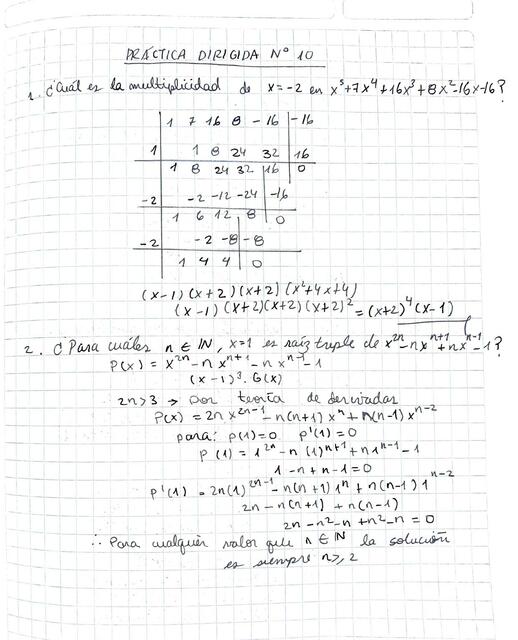 PRÁCTICA DIRIGIDA N° 10
1. ¿Cuál es la multiplicidad de x=-2 en x⁵+7x⁴+16x³+8x²-16x-16?
1 7 16 8 -16 -16
1 1 8 24 32 16
1 8 24 32 16 0
-2 -2 -12 -24 -16
1 6 12 8 0
-2 -2 -8 -8
1 4 4 0
(x-1)(x+2)(x+2)(x²+4x+4)
(x-1)(x+2)(x+2)(x+2)² = (x+2)⁴(x-1)
2. ¿Para cuáles n ∈ IN, x=1 es raíz triple de x²ⁿ-nxⁿ⁺¹+nxⁿ⁻¹-1?
P(x) = x²ⁿ-nxⁿ⁺¹-nxⁿ⁻¹-1
(x-1)³. G(x)
2n>3 → por teoría de derivadas
P(x) = 2nx²ⁿ⁻¹-n(n+1)xⁿ+n(n-1)xⁿ⁻²
para: p(1)=0 p'(1)=0
p(1)=1²ⁿ-n(1)ⁿ⁺¹+n1ⁿ⁻¹-1
1-n+n-1=0
p'(1) = 2n(1)²ⁿ⁻¹-n(n+1)1ⁿ+n(n-1)1ⁿ⁻²
2n-n(n+1)+n(n-1)
2n-n²-n+n²-n=0
∴ Para cualquier valor que n ∈ IN la solución
es siempre n≥2